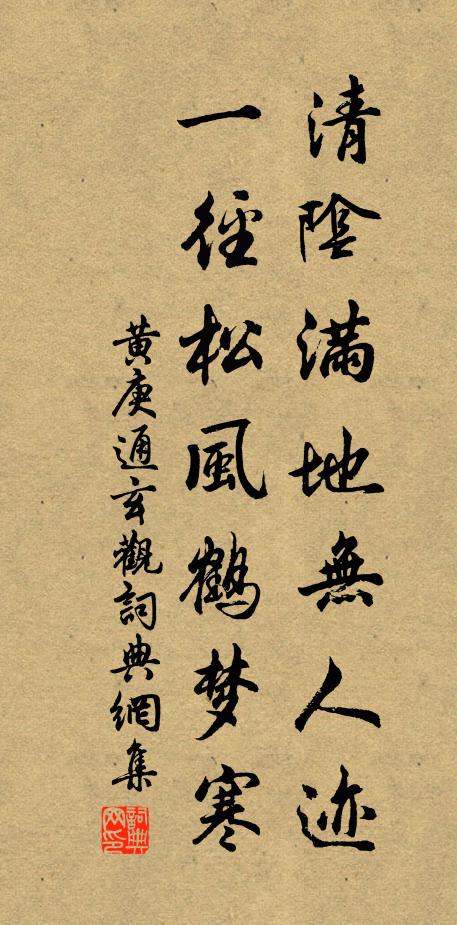 清陰滿地無人迹
一徑松風鶴梦寒
黄庚通玄觀詞典網集
詞典网印